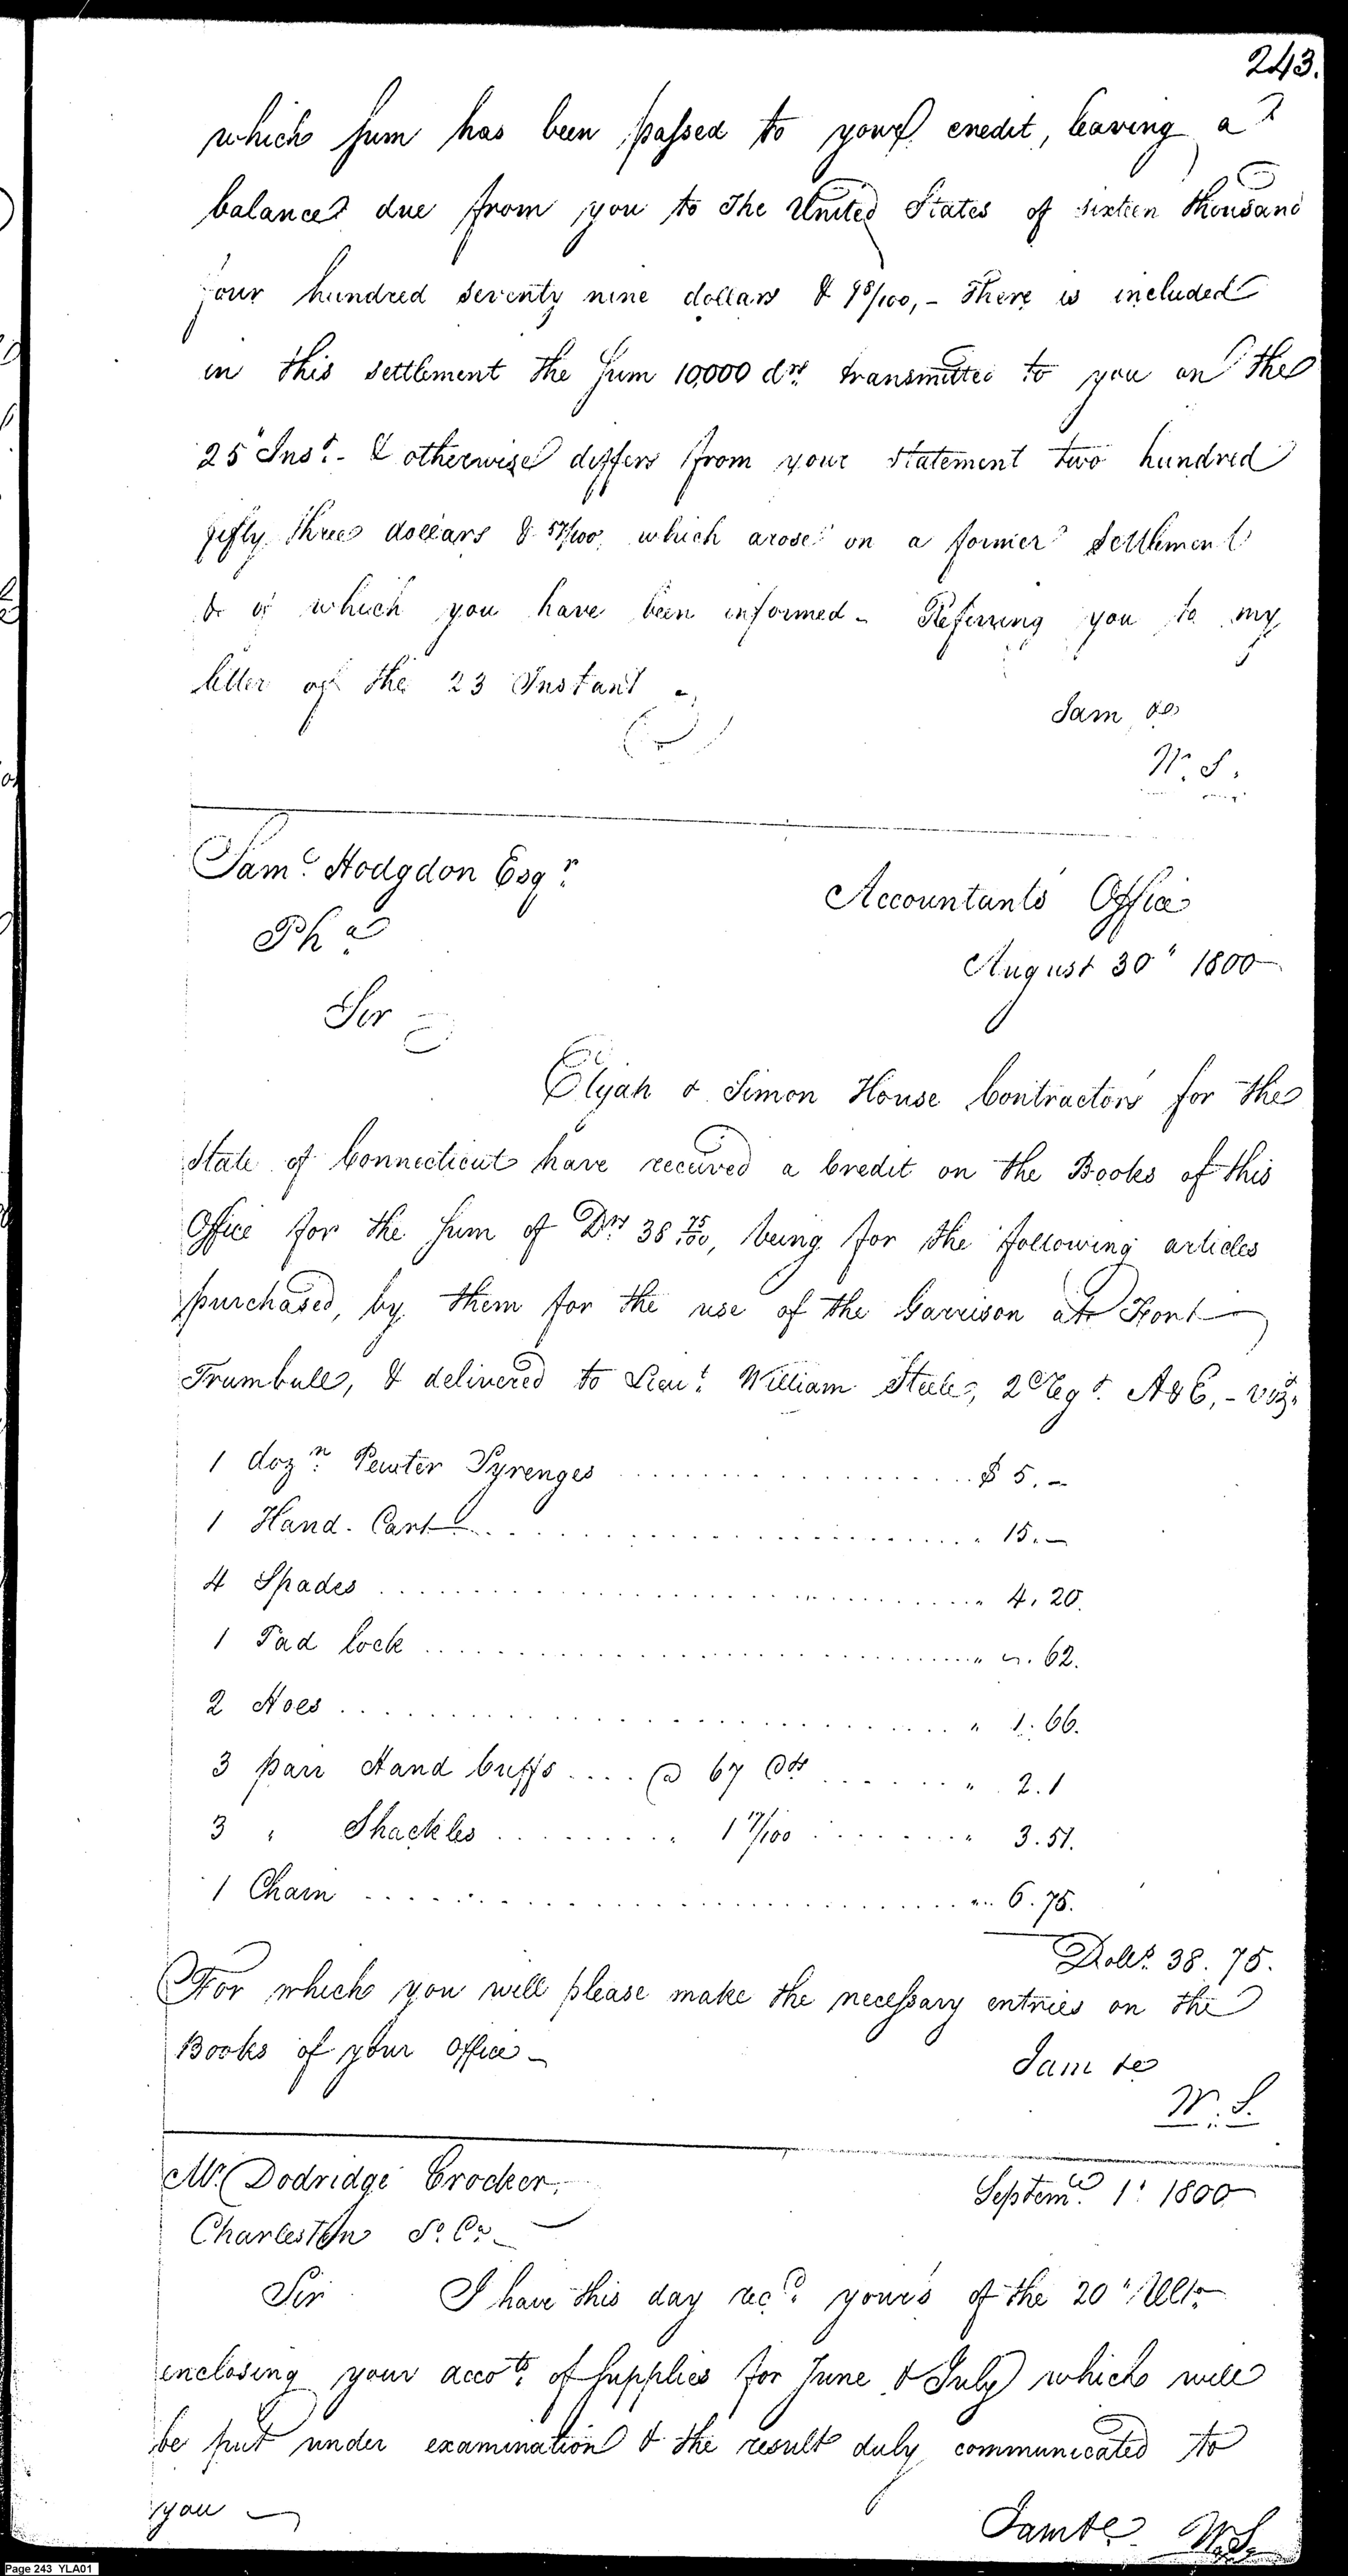 243.
which sum has been passed to your credit, leaving a
balance due from you to the United States of sixteen thousand
four hundred seventy nine dollars & 98/100,- There is included
in this settlement the sum 10,000 drs. transmitted to you on the
25" Inst.- & otherwise differs from your statement two hundred
fifty three dollars & 57/100, which arose on a former settlement
& of which you have been informed - Referring you to my
letter of the 23 Instant -
I am &c
W. S.
Saml. Hodgdon Esqr.
Pha.
Accountants Office
August 30" 1800
Sir
Elijah & Simon House Contractors for the
State of Connecticut have received a Credit on the Books of this
Office for the sum of Drs 38 75/100, being for the following articles
purchased, by them for the use of the Garrison at Fort
Trumbull, & delivered to Lieut. William Steele, 2d Regt. A&E,- viz.
1 dozn. Pewter Syrenges $ 5.-
1 Hand. Cart " 15.-
4 Spades " 4.20.
1 Pad lock " ". 62.
2 Hoes " 1.66.
3 pair Hand Cuffs @ 67 Cts " 2.1
3 " Shackles " 1 17/100 " 3.51.
1 Chain " 6.75.
Dolls. 38.75.
For which you will please make the necessary entries on the
Books of your Office -
I am &c
W. S.
Mr. Dodridge Crocker.
Charleston So. Ca.
Septemr. 1. 1800
Sir I have this day recd. yours of the 20" Ulto.
enclosing your accots. of supplies for June & July which will
be put under examination & the result duly communicated to
you -
I am &c W. S.
Page 243 YLA01